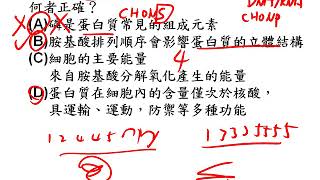 CHON(S)
DNA/RNA
CHONP
何者正確?
(A)磷是蛋白質常見的組成元素
(B)胺基酸排列順序會影響蛋白質的立體結構
(C)細胞的主要能量
4
來自胺基酸分解氧化產生的能量
(D)蛋白質在細胞內的含量僅次於核酸,
具運輸、運動,防禦等多種功能